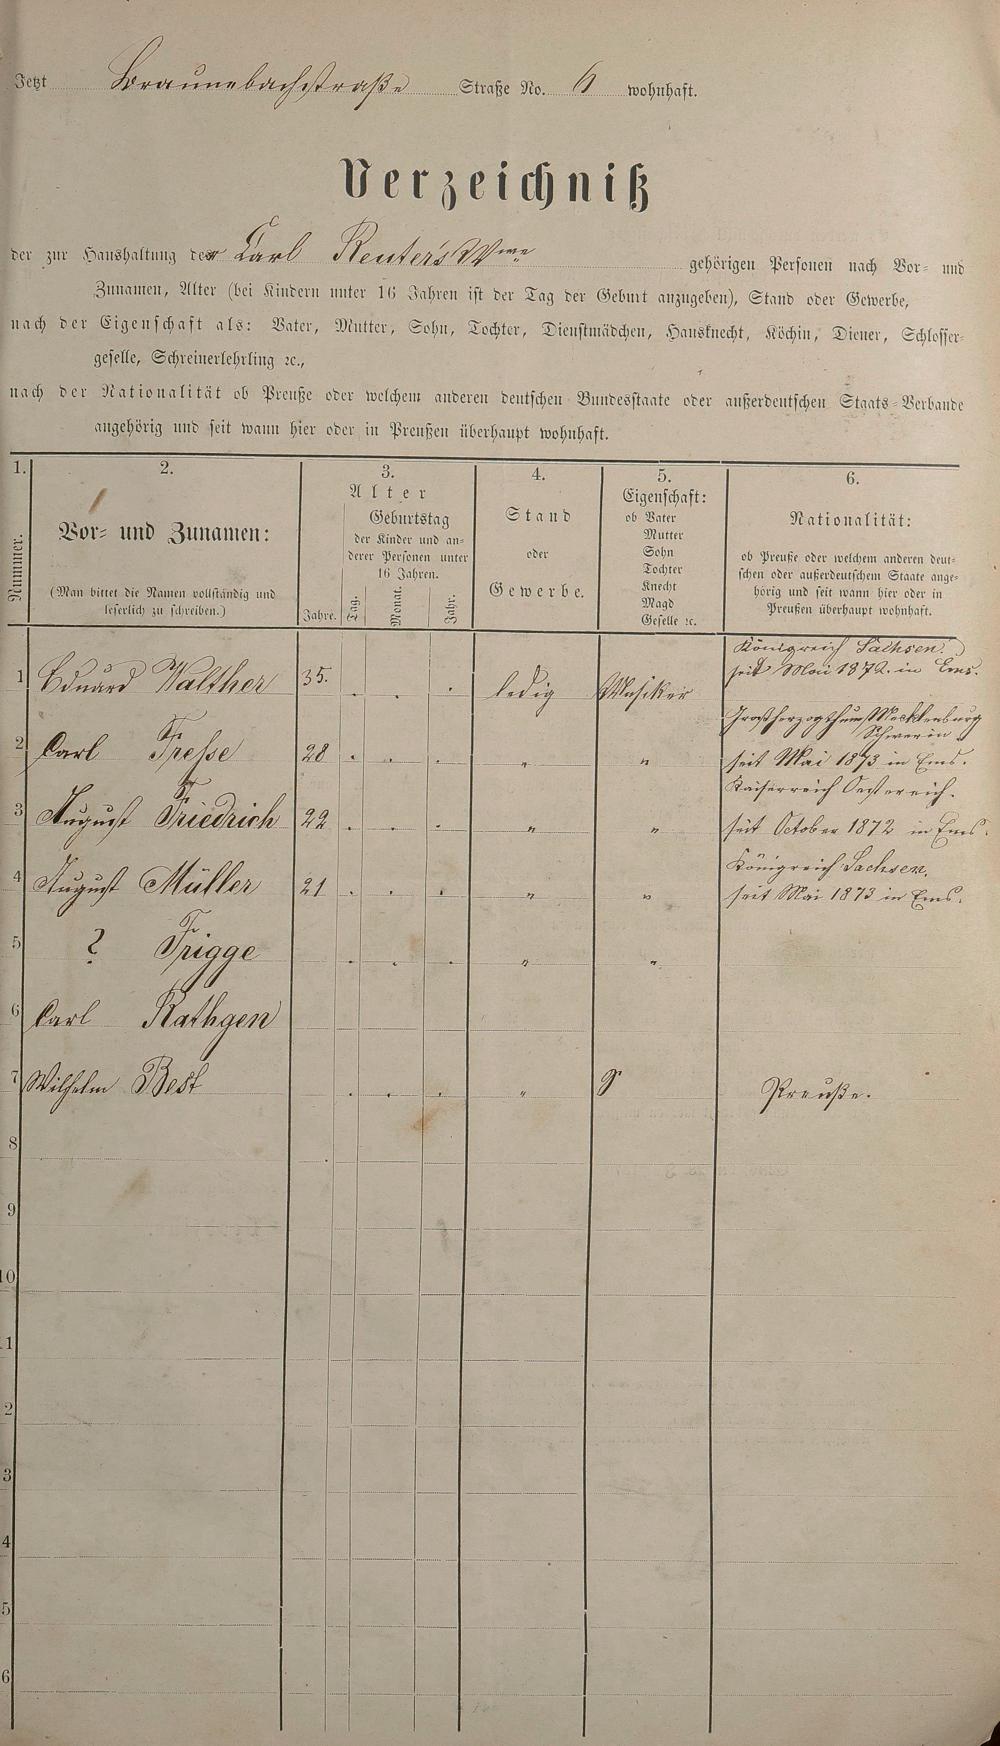 Jetzt Braunebachstraße Straße No. 6 wohnhaft.
Verzeichniß
der zur Haushaltung der Carl Reuter's Wwe gehörigen Personen nach Vor- und
Zunamen, Alter (bei Kindern unter 16 Jahren ist der Tag der Geburt anzugeben), Stand oder Gewerbe,
nach der Eigenschaft als: Vater, Mutter, Sohn, Tochter, Dienstmädchen, Hausknecht, Köchin, Diener, Schlosser-
geselle, Schreinerlehrling ꝛc.,
nach der Nationalität ob Preuße oder welchem anderen deutschen Bundesstaate oder außerdeutschen Staats-Verbande
angehörig und seit wann hier oder in Preußen überhaupt wohnhaft.
1. 2. 3. 4. 5. 6.
Nummer.
Vor- und Zunamen:
(Man bittet die Namen vollständig und
leserlich zu schreiben.)
Alter
Jahre.
Geburtstag
der Kinder und an-
derer Personen unter
16 Jahren.
Tag. Monat. Jahr.
Stand
oder
Gewerbe.
Eigenschaft:
ob Vater
Mutter
Sohn
Tochter
Knecht
Magd
Geselle ꝛc.
Nationalität:
ob Preuße oder welchem anderen deut-
schen oder außerdeutschem Staate ange-
hörig und seit wann hier oder in
Preußen überhaupt wohnhaft.
Königreich Sachsen.
1 Eduard Walther 35. . . . ledig Musiker seit Mai 1872. in Ems.
Großherzogthum Mecklenburg
Schwerin
2 Carl Tresse 28 . . . " " seit Mai 1873 in Ems.
Kaiserreich Oesterreich.
3 August Friedrich 22 . . . " " seit October 1872 in Ems.
Königreich Sachsen.
4 August Müller 21 . . . " " seit Mai 1873 in Ems.
5 ? Frigge . . . " "
6 Carl Rathgen
7 Wilhelm Best . . . " Preuße.
8
9
10
1
2
3
4
5
6